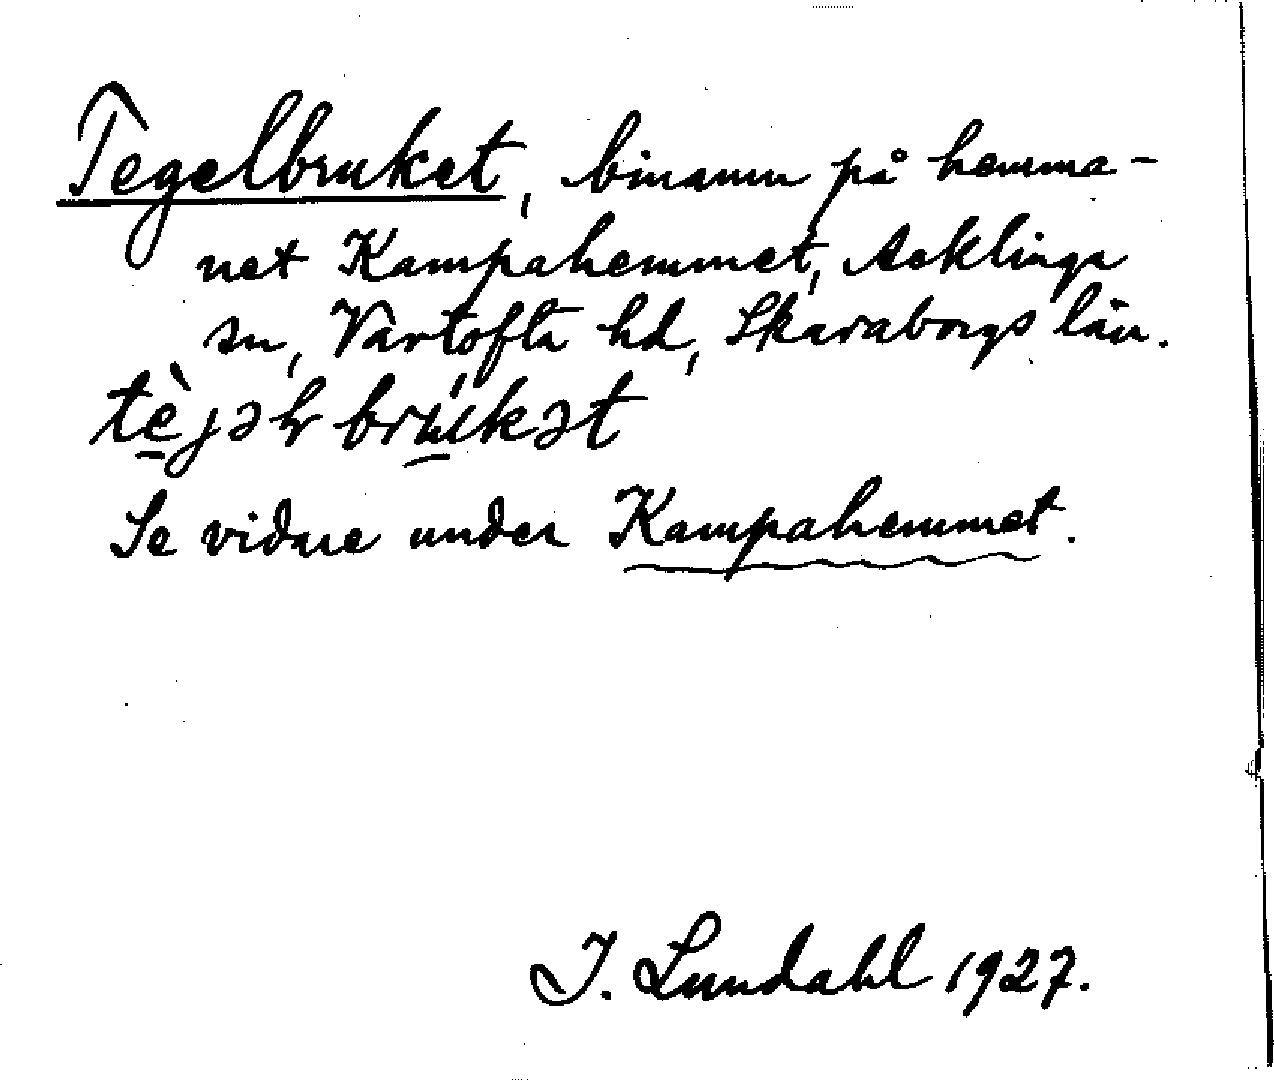 Tegelbruket, binamn på hemma-
net Kampahemmet, Acklinga
sn, Vartofta hd, Skaraborgs län.
tè̠jəɫbrú̠kət
Se vidare under Kampahemmet.
I. Lundahl 1927.